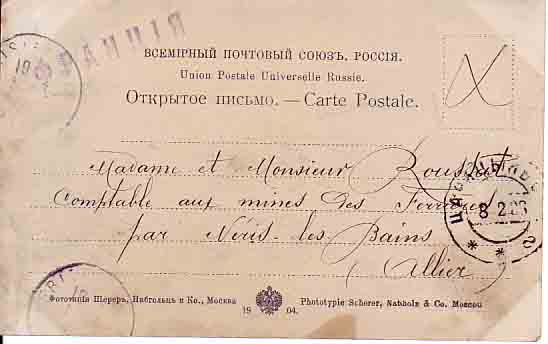 ФРАНЦІЯ
ВСЕМІРНЫЙ ПОЧТОВЫЙ СОЮЗЪ. РОССІЯ.
Union Postale Universelle Russie.
Открытое письмо. — Carte Postale.
Madame et Monsieur
Comptable aux mines des Ferrières
par Néris-les-Bains
(Allier)
Фототипія Шереръ, Набгольцъ и Ко., Москва
19 04.
Phototypie Scherer, Nabholz & Co. Moscou